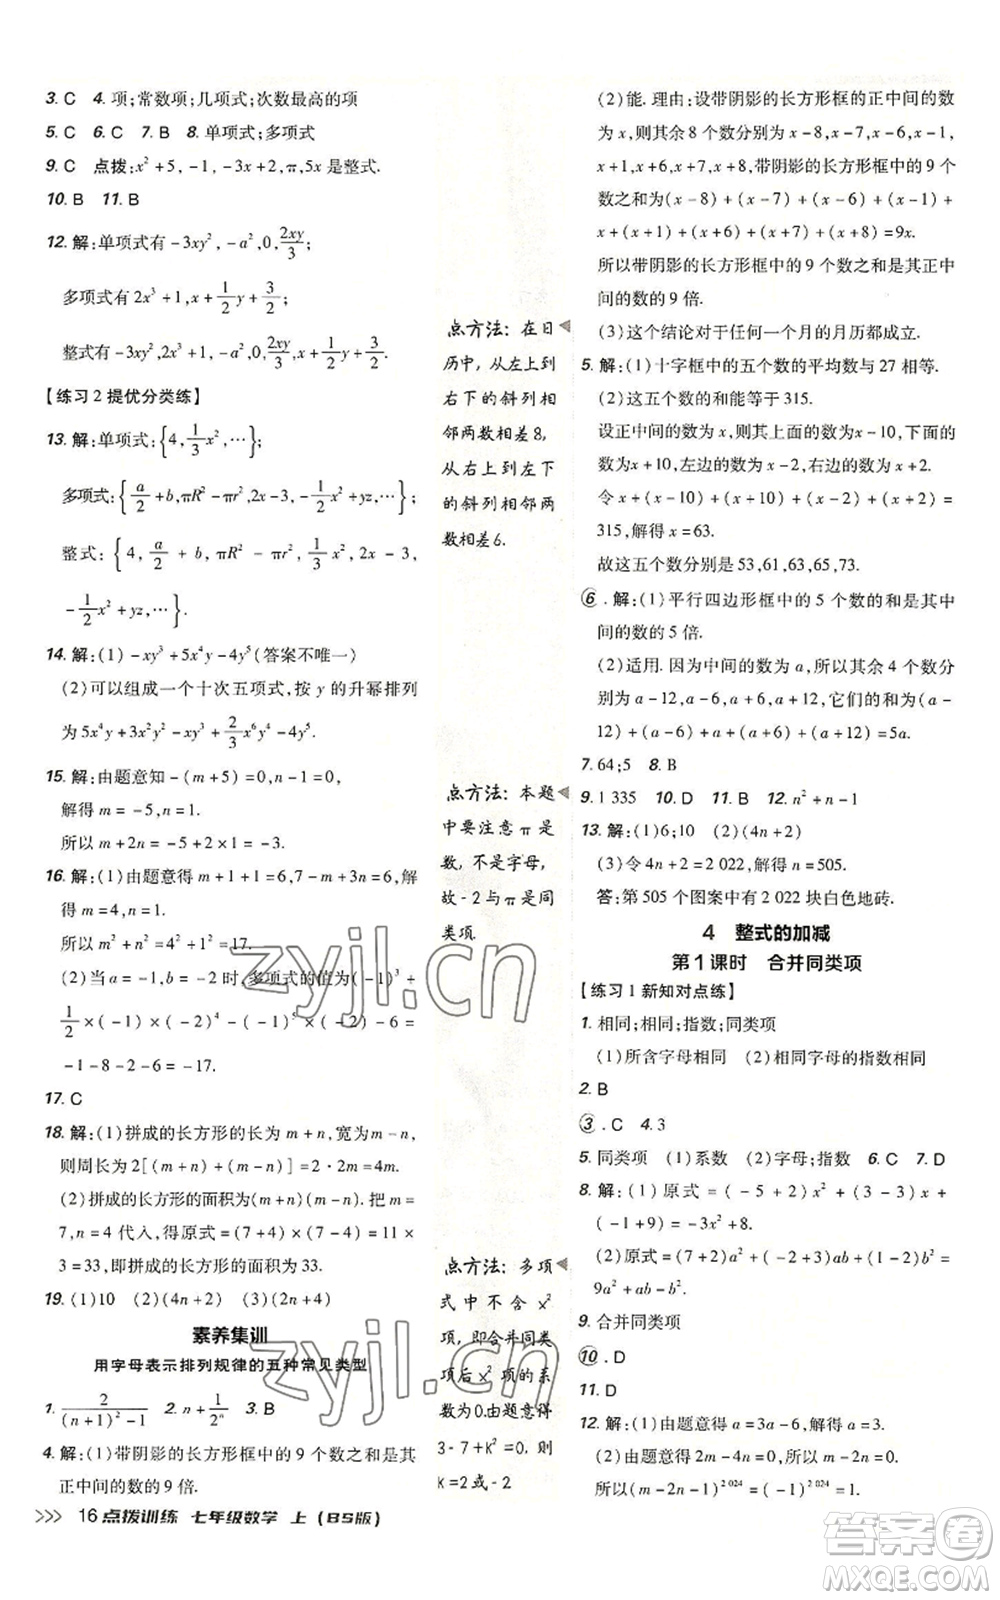 3. C 4. 项;常数项;几项式;次数最高的项
5. C 6. C 7. B 8. 单项式;多项式
9. C 点拨:x²+5,-1,-3x+2,π是整式.
10. B 11. B
12. 解:单项式有-3xy²,-a²,0,2xy/3;
多项式有2x³+1,x+1/2,x/2+3/2;
【练习2提优分类练】
13. 解:单项式:{4,1/3x²,…};
多项式:{a/2+b,πR²-πr²,2x-3,-1/2x²+yz,…};
整式:{4,a/2+b,πR²-πr²,1/3x²,2x-3,
-1/2x²+yz,…}.
14. 解:(1)-xy³+5x⁴y-4y⁵(答案不唯一)
(2)可以组成一个十次五项式,按y的升幂排列
为5x⁴y+2x²y²-xy³+2/3x⁶y⁴-4y⁵.
15. 解:由题意知-(m+5)=0,n-1=0,
解得m=-5,n=1.
所以m+2n=-5+2×1=-3.
16. 解:(1)由题意得m+1+1=6,7-m+n=6,解
得m=4,n=1.
所以m²+n²=4²+1²=17.
(2)当x=-1,y=-2时,多项式的值为(-1)³+
1/2×(-1)×(-2)⁴-(-1)×(-2)-6=
-1-8-2-6=-17.
17. C
18. 解:(1)拼成的长方形的长为m+n,宽为m-n,
则周长为2[(m+n)+(m-n)]=2·2m=4m.
(2)拼成的长方形的面积为(m+n)(m-n).把m=
7,n=4代入,得原式=(7+4)×(7-4)=11
×3=33,即拼成的长方形的面积为33.
19. (1)10 (2)(4n+2) (3)(2n+1)
素养集训
用字母表示排列规律的五种常见类型
1. 2/((n+1)²-1) 2. n+1/2ⁿ 3. B
4. 解:(1)带阴影的长方形框中的9个数之和是其
正中间的数的9倍.
16 点拨训练 七年级数学 上(BS版)
点方法:在日
历中,从左上到
右下的斜列相
邻两数相差8,
从右上到左下
的斜列相邻两
数相差6.
点方法:本题
中要注意π是
数,不是字母,
故-2与π是同
类项.
点方法:多项
式中不含x²
项,即合并同类
项后x²项的系
数为0.由题意得
3-7+k²=0,则
k=2或-2
(2)能. 理由:设带阴影的长方形框的正中间的数
为x,则其余8个数分别为x-8,x-7,x-6,x-1,
x+1,x+6,x+7,x+8,带阴影的长方形框中的9个
数之和为(x-8)+(x-7)+(x-6)+(x-1)+
x+(x+1)+(x+6)+(x+7)+(x+8)=9x.
所以带阴影的长方形框中的9个数之和是其正中
间的数的9倍.
(3)这个结论对于任何一个月的月历都成立.
5. 解:(1)十字框中的五个数的平均数与27相等.
(2)这五个数的和能等于315.
设正中间的数为x,则其上面的数为x-10,下面的
数为x+10,左边的数为x-2,右边的数为x+2.
令x+(x-10)+(x+10)+(x-2)+(x+2)=
315,解得x=63.
故这五个数分别是53,61,63,65,73.
6. 解:(1)平行四边形框中的5个数的和是其中
间的数的5倍.
(2)适用. 因为中间的数为a,所以其余4个数分
别为a-12,a-6,a+6,a+12,它们的和为(a-
12)+(a-6)+a+(a+6)+(a+12)=5a.
7. 64;5 8. B
9. 1 335 10. D 11. B 12. n²+n-1
13. 解:(1)6;10 (2)(4n+2)
(3)令4n+2=2 022,解得n=505.
答:第505个图案中有2 022块白色地砖.
4 整式的加减
第1课时 合并同类项
【练习1新知对点练】
1. 相同;相同;指数;同类项
(1)所含字母相同 (2)相同字母的指数相同
2. B
3. C 4. 3
5. 同类项 (1)系数 (2)字母;指数 6. C 7. D
8. 解:(1)原式=(-5+2)x²+(-3+3)x+
(-1+9)=-3x²+8.
(2)原式=(2+7)a²+(-2+3)ab+(1-2)b²=
9a²+ab-b².
9. 合并同类项
10. D
11. D
12. 解:(1)由题意得a=3a-6,解得a=3.
(2)由题意得2m-4n=0,所以m-2n=0.
所以(m-2n-1)²⁰²⁴=(-1)²⁰²⁴=1.
zyjl.cn
zyjl.cn
答案圈
MXQE.COM